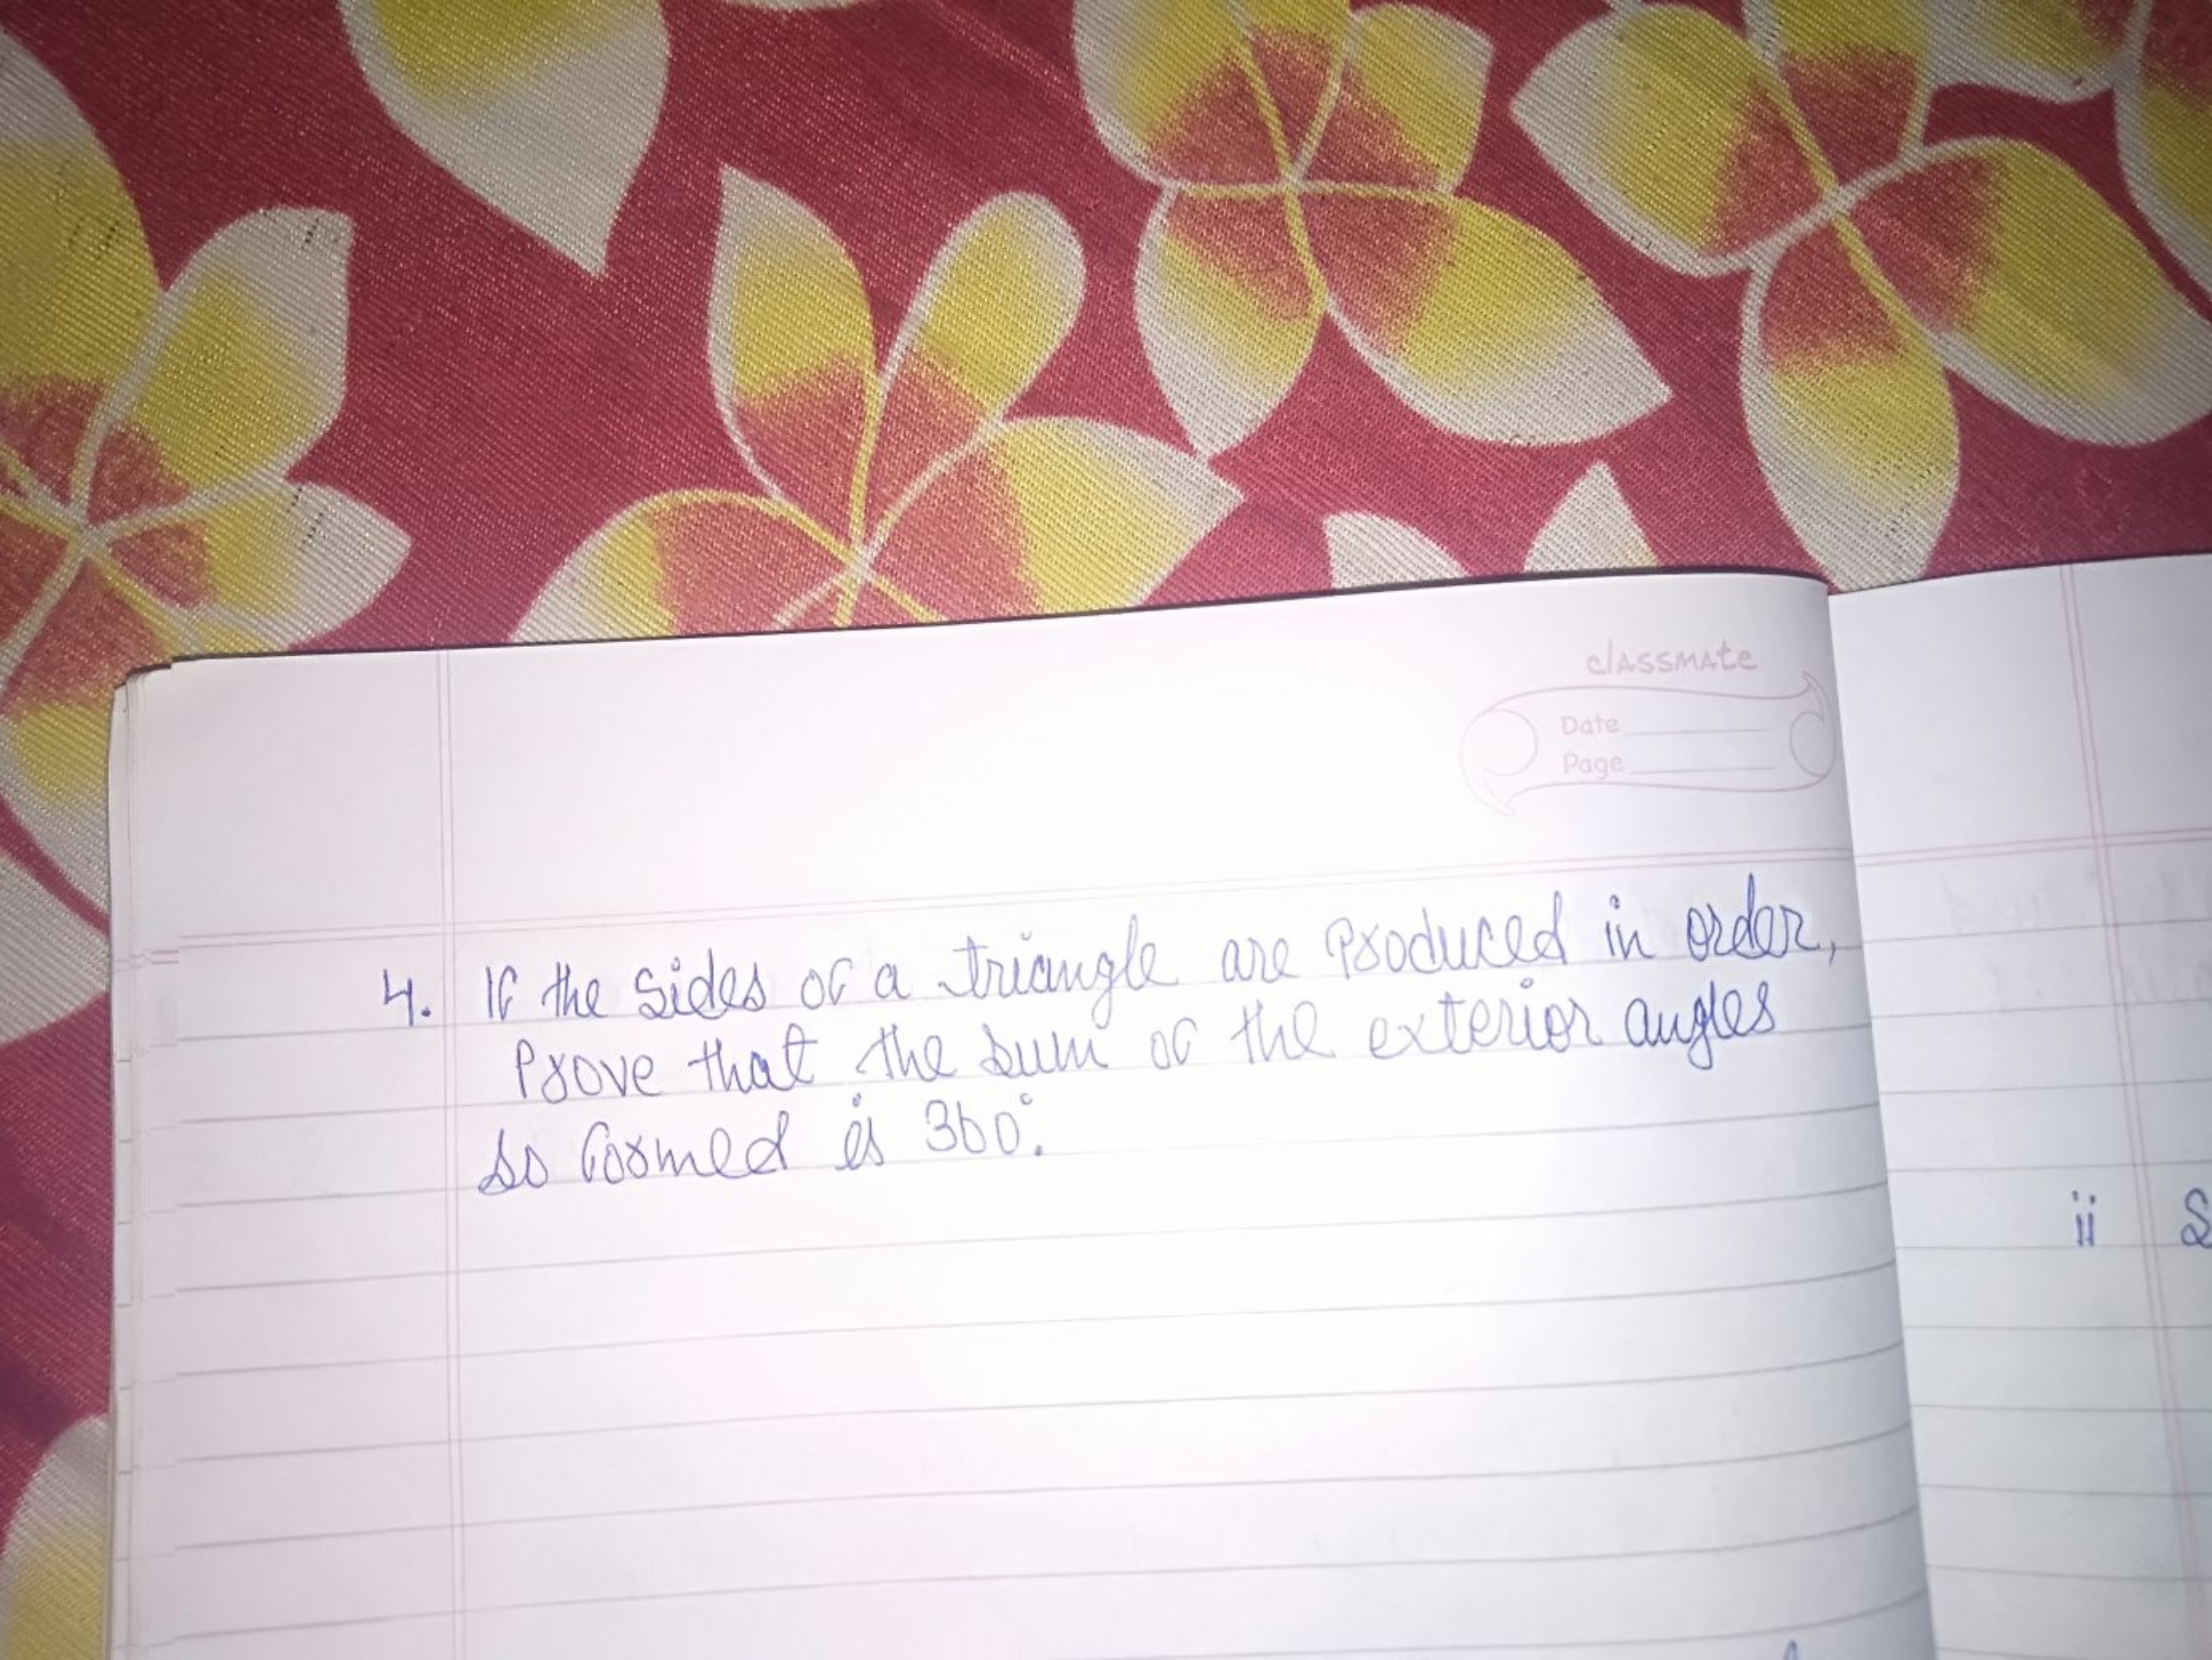 classmate
Date
Page
4. If the sides of a triangle are produced in order,
Prove that the sum of the exterior angles
so formed is 360°.
ii